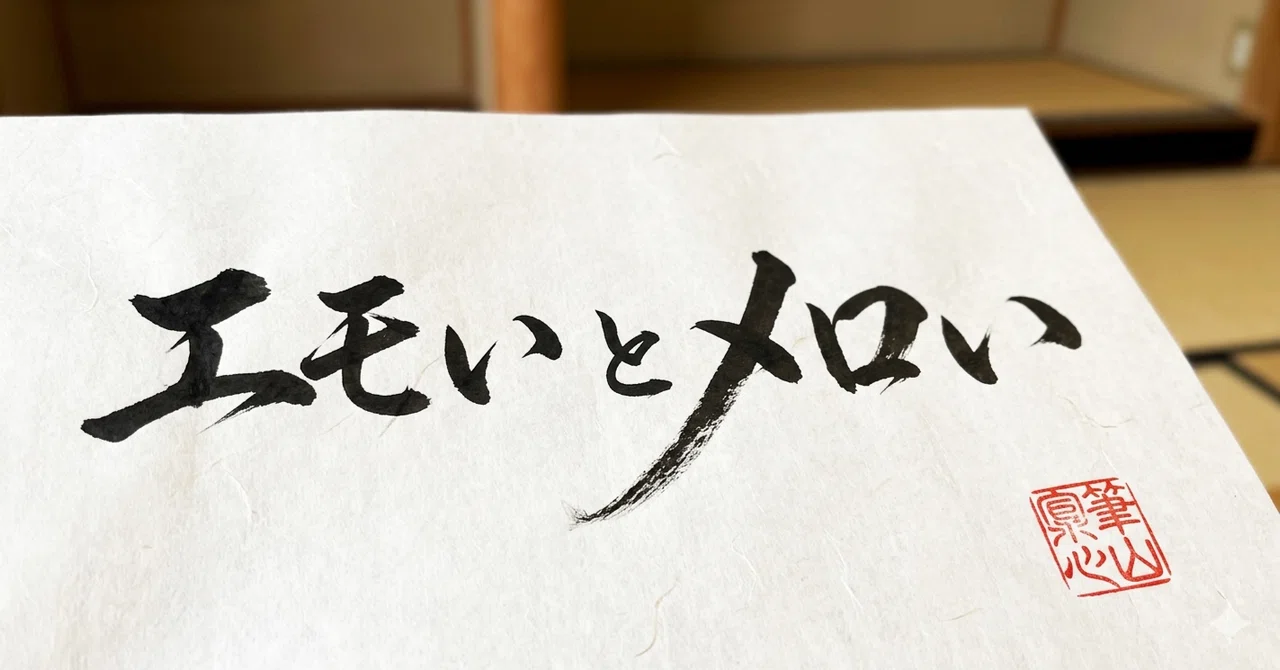 エモいとメロい
筆山